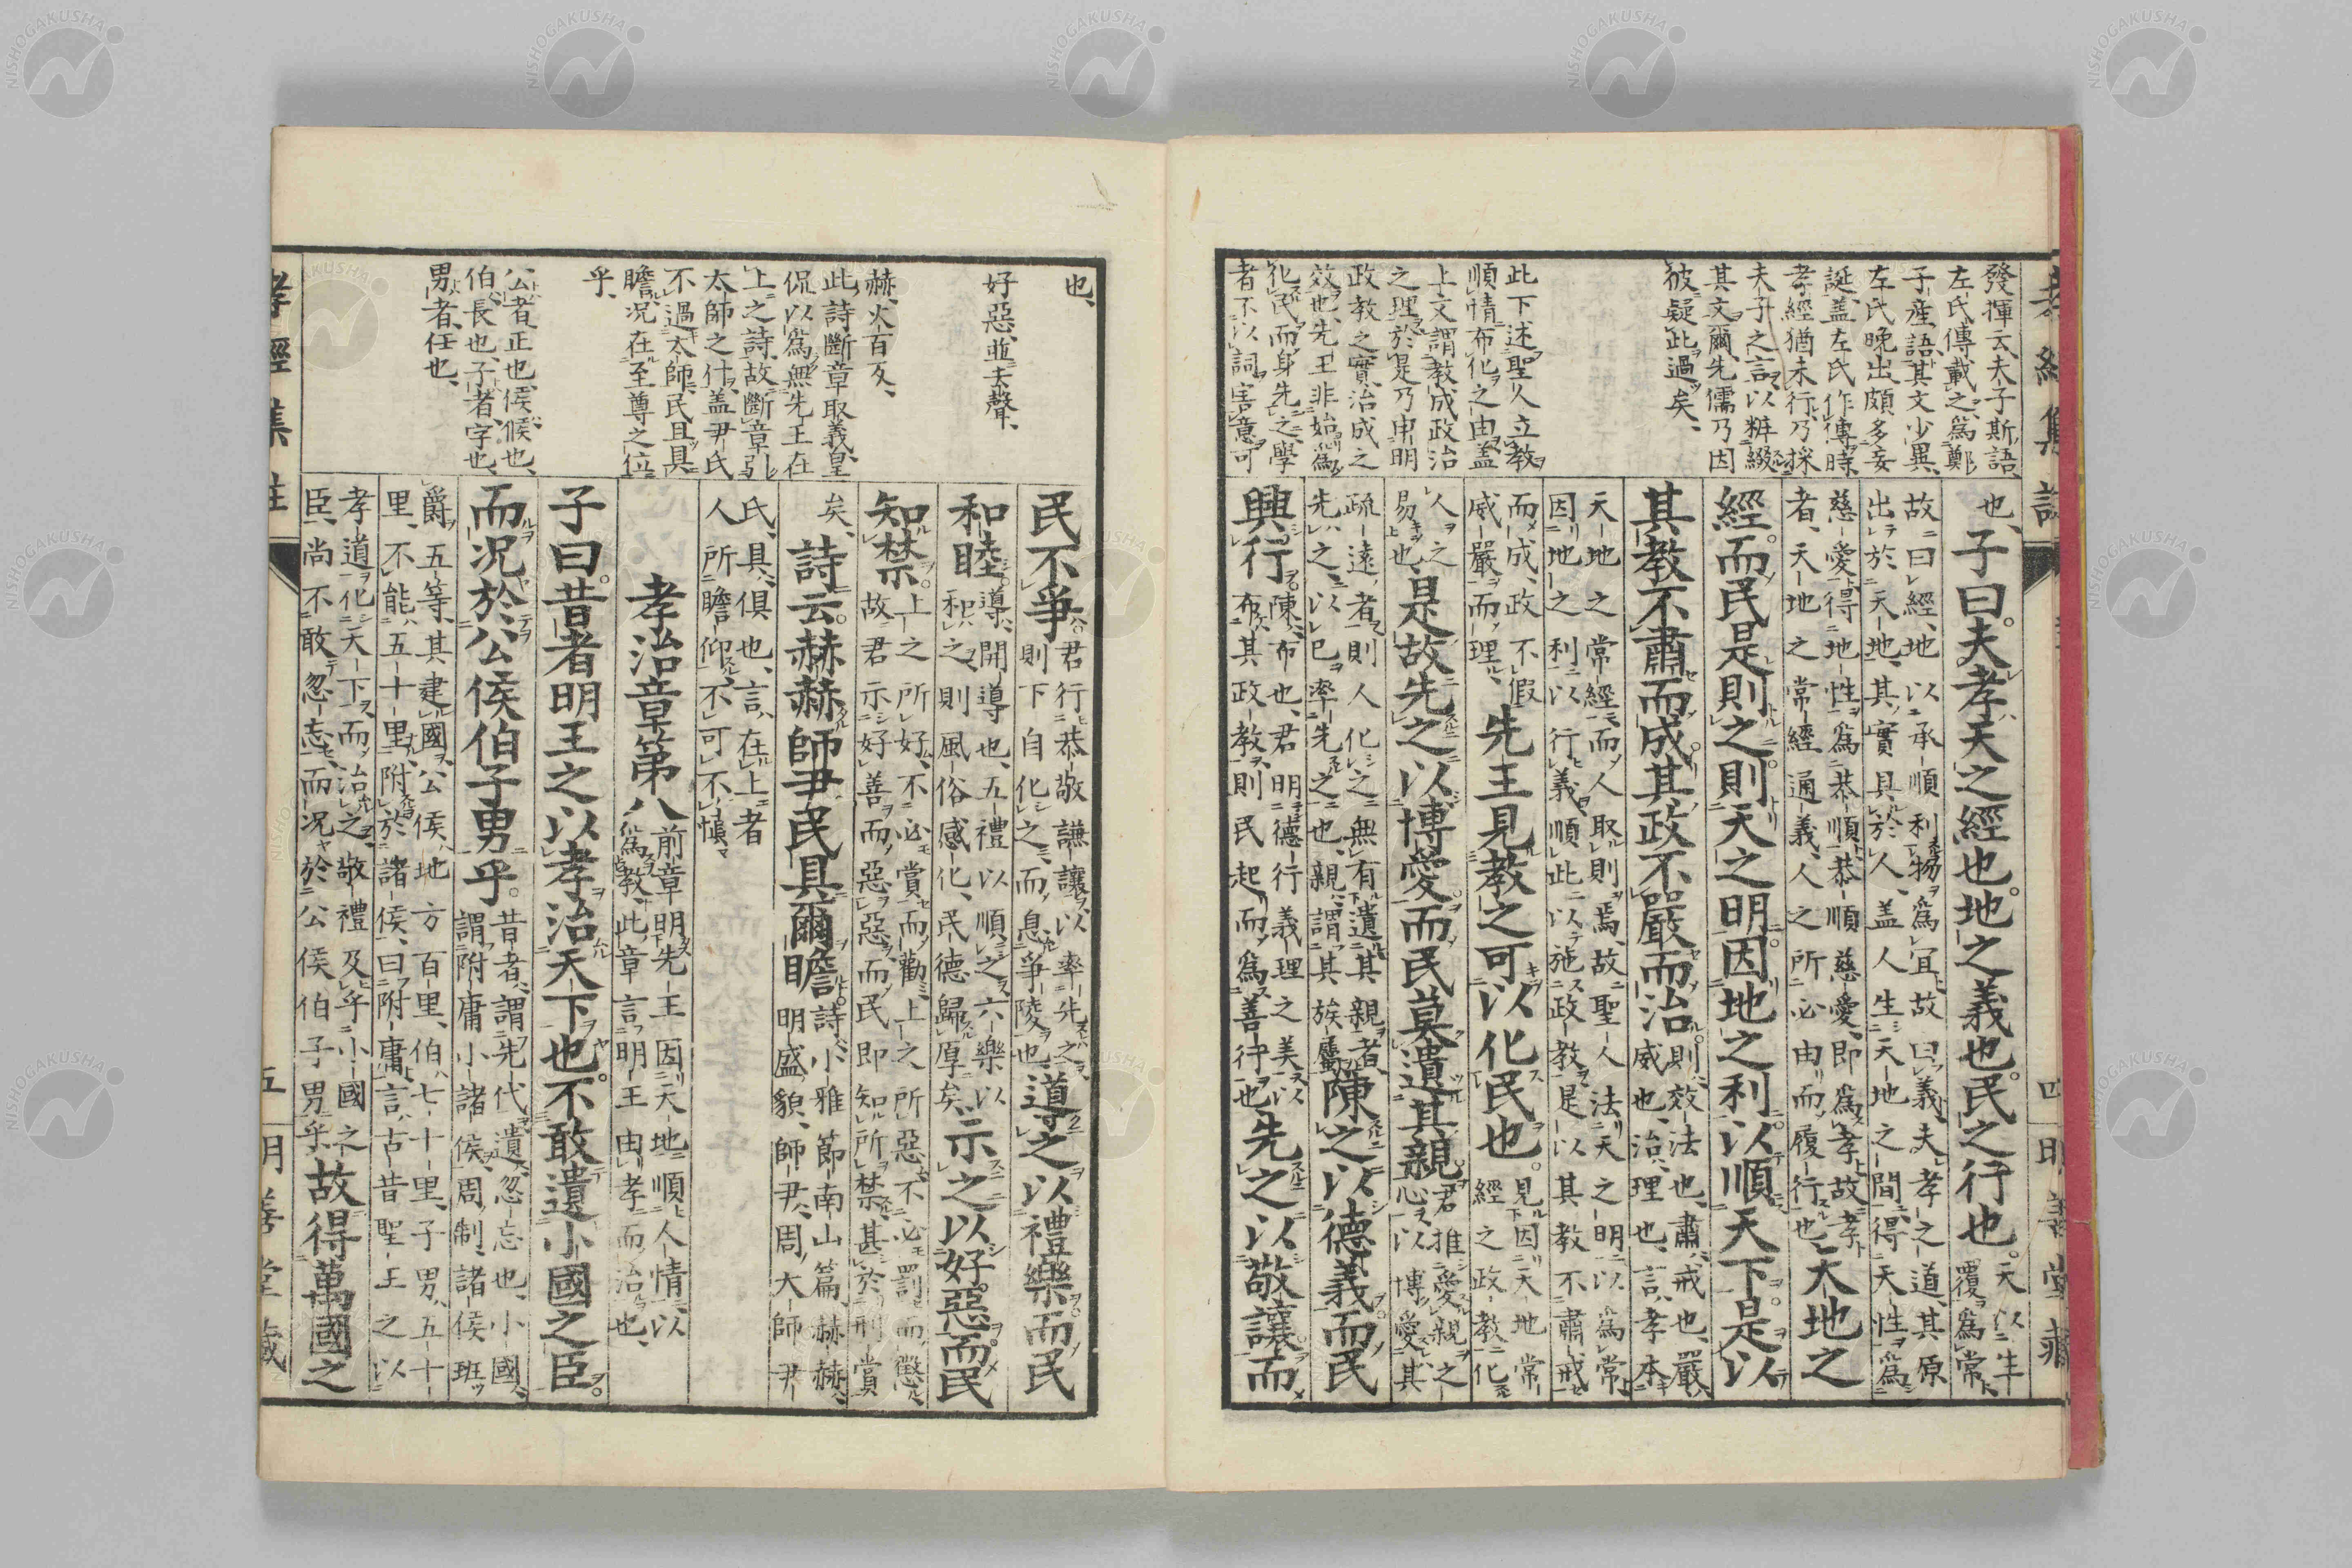 孝經集註
四 明善堂藏
發揮云、夫子斯語、
左氏傳載之、爲鄭
子産語、其文少異、
左氏晩出頗多妄
誕、盖左氏作傳時
孝經猶未行、乃採
夫子之言、以粧綴
其文爾、先儒乃因
彼疑此過矣、
此下述聖人立教
順情布化之由盖
上文謂教成政治
之理於是乃申明
政教之實治成之
效也、先王非始爲
化民而身先之學
者不以詞害意可
也、子曰。夫孝天之經也。地之義也。民之行也。
天以生
覆爲常
故曰經、地以承順利物爲宜、故曰義、夫孝之道、其原
出於天地、其實具於人、盖人生天地之間、得天性爲
慈愛、得地性爲恭順、恭順慈愛、即爲孝、故孝
者、天地之常經、通義、人之所必由而履行也、
天地之
經。而民是則之。則天之明。因地之利。以順天下。是以
其教不肅而成。其政不嚴而治。
則效法也、肅、戒也、嚴、
威也、治、理也、言、孝本
天地之常經、而人取則焉、故聖人法天之明、以爲常
因地之利、以行義、順此以施政教、是以其教不肅戒
而成、政不假
威嚴而理、
先王見教之可以化民也。
見因天地常
經之政教化
人之
易也、
是故先之以博愛。而民莫遺其親。
君推愛親之
心、以博愛其
疏遠者、則人化之、無有遺其親者、
先之、以己率先之也、親、謂其族屬、
陳之以德義。而民
興行。
陳、布也、君明德行義理之美、以
布其政教、則民起而爲善行也、
先之以敬讓。而
也、
好惡、並去聲、
赫、火百反、
此詩斷章取義、皇
侃以爲無先王在
上之詩、故斷章引
太師之什、盖尹氏
不過太師、民且具
瞻、况在至尊之位
乎、
公者正也、侯候也、
伯長也、子者字也、
男者任也、
民不爭。
君行恭敬謙讓、以率先之、
則下自化之、而息爭陵也、
導之以禮樂。而民
和睦。
導、開導也、五禮以順之、六樂以
和之、則風俗感化、民德歸厚矣、
示之以好惡。而民
知禁。
上之所好、不必賞而勸、上之所惡、不必罰而懲、
故君示好善而惡惡、而民即知所禁、甚於刑賞
矣、
詩云。赫赫師尹民具爾瞻。
詩、小雅節南山篇、赫赫、
明盛貌、師尹、周大師尹
氏、具、俱也、言、在上者
人所瞻仰、不可不愼
孝治章第八
前章明先王因天地順人情以
爲教、此章言明王由孝而治也、
子曰。昔者明王之以孝治天下也。不敢遺小國之臣。
而况於公侯伯子男乎。
昔者、謂先代、遺、忽忘也、小國、
謂附庸小諸侯、周制、諸侯班
爵、五等、其建國、公侯地方百里、伯七十里、子男五十
里、不能五十里、附於諸侯、曰附庸、言、古昔聖王之以
孝道化天下、而治之、敬禮及乎小國之
臣、尚不敢忽忘、而况於公侯伯子男乎、
故得萬國之
孝經集註
五 明善堂藏